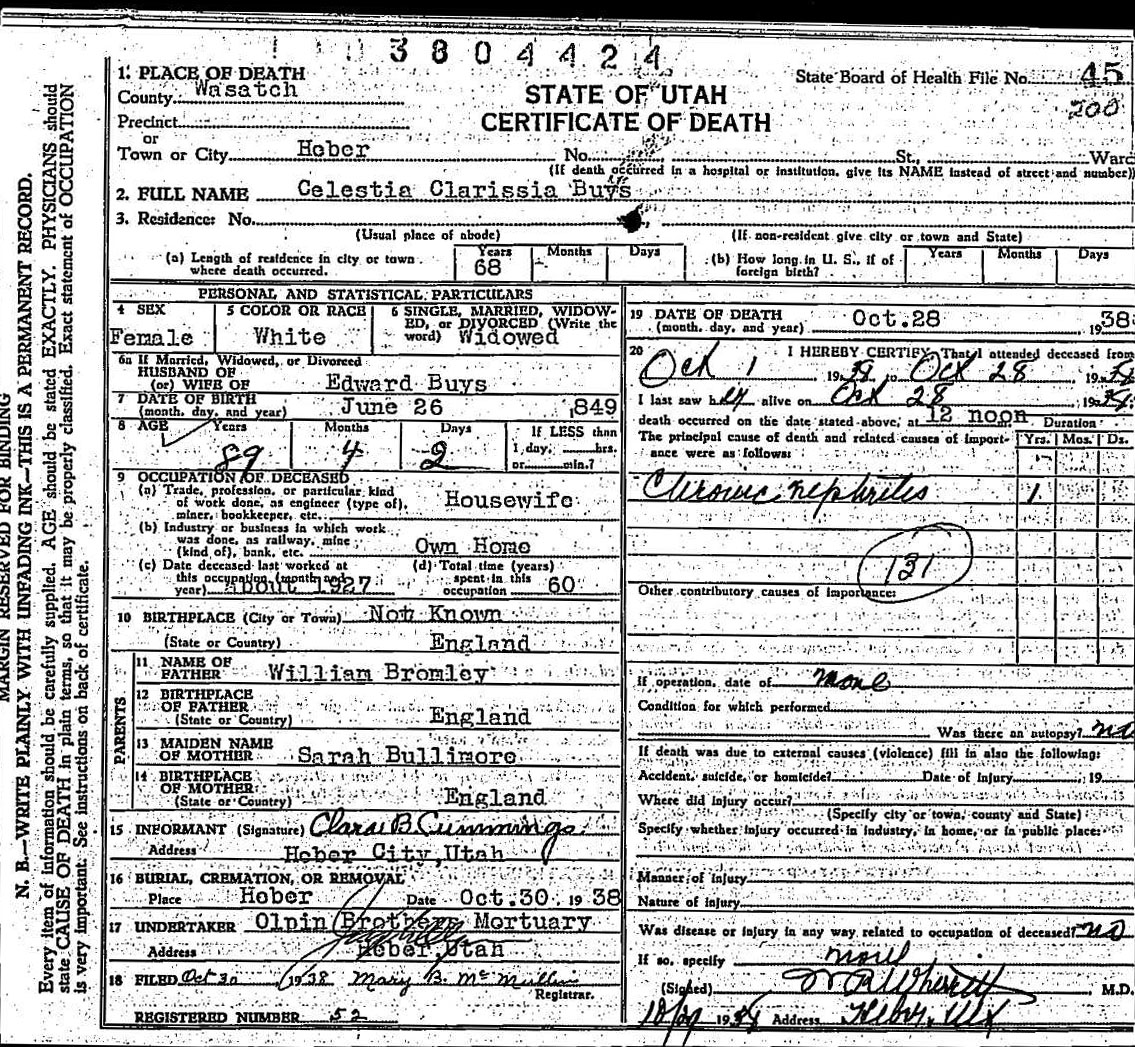 3804424
1. PLACE OF DEATH
State Board of Health File No. 45
County Wasatch
200
STATE OF UTAH
CERTIFICATE OF DEATH
Precinct
or
Town or City Heber No. St., Ward
(If death occurred in a hospital or institution, give its NAME instead of street and number)
2. FULL NAME Celestia Clarissia Buys
3. Residence: No.
(Usual place of abode) (If non-resident give city or town and State)
(a) Length of residence in city or town where death occurred. Years 68 Months Days (b) How long in U. S., if of foreign birth? Years Months Days
PERSONAL AND STATISTICAL PARTICULARS
4 SEX Female
5 COLOR OR RACE White
6 SINGLE, MARRIED, WIDOWED, or DIVORCED (Write the word) Widowed
6a If Married, Widowed, or Divorced
HUSBAND OF
(or) WIFE OF Edward Buys
7 DATE OF BIRTH
(month, day, and year) June 26 1849
8 AGE Years 89 Months 4 Days 2 If LESS than 1 day, hrs. or min.?
9 OCCUPATION OF DECEASED
(a) Trade, profession, or particular kind
of work done, as engineer (type of),
miner, bookkeeper, etc. Housewife
(b) Industry or business in which work
was done, as railway, mine
(kind of), bank, etc. Own Home
(c) Date deceased last worked at
this occupation (month and
year) About 1927
(d) Total time (years)
spent in this
occupation 60
10 BIRTHPLACE (City or Town) Not Known
(State or Country) England
PARENTS
11 NAME OF
FATHER William Bromley
12 BIRTHPLACE
OF FATHER
(State or Country) England
13 MAIDEN NAME
OF MOTHER Sarah Bullimore
14 BIRTHPLACE
OF MOTHER
(State or Country) England
15 INFORMANT (Signature) Clara B. Cummings
Address Heber City, Utah
16 BURIAL, CREMATION, OR REMOVAL
Place Heber Date Oct. 30 19 38
17 UNDERTAKER Olpin Brothers Mortuary
Address Heber, Utah
18 FILED Oct 30 1938 Mary B. McMullin
Registrar.
REGISTERED NUMBER 52
19 DATE OF DEATH
(month, day, and year) Oct. 28 1938
20 I HEREBY CERTIFY, That I attended deceased from
Oct 1 1938 to Oct 28 1938
I last saw her alive on Oct 28 1938
death occurred on the date stated above, at 12 noon
Duration
The principal cause of death and related causes of importance were as follows: Yrs. Mos. Ds.
Chronic nephritis 1
131
Other contributory causes of importance:
If operation, date of none
Condition for which performed
Was there an autopsy? no
If death was due to external causes (violence) fill in also the following:
Accident, suicide, or homicide? Date of injury 19
Where did injury occur?
(Specify city or town, county and State)
Specify whether injury occurred in industry, in home, or in public place:
Manner of injury
Nature of injury
Was disease or injury in any way related to occupation of deceased? no
If so, specify none
(Signed) M.D.
10/29 1938 Address Heber, Ut
MARGIN RESERVED FOR BINDING
N. B.—WRITE PLAINLY WITH UNFADING INK—THIS IS A PERMANENT RECORD.
Every item of information should be carefully supplied. AGE should be stated EXACTLY. PHYSICIANS should
state CAUSE OF DEATH in plain terms, so that it may be properly classified. Exact statement of OCCUPATION
is very important. See instructions on back of certificate.